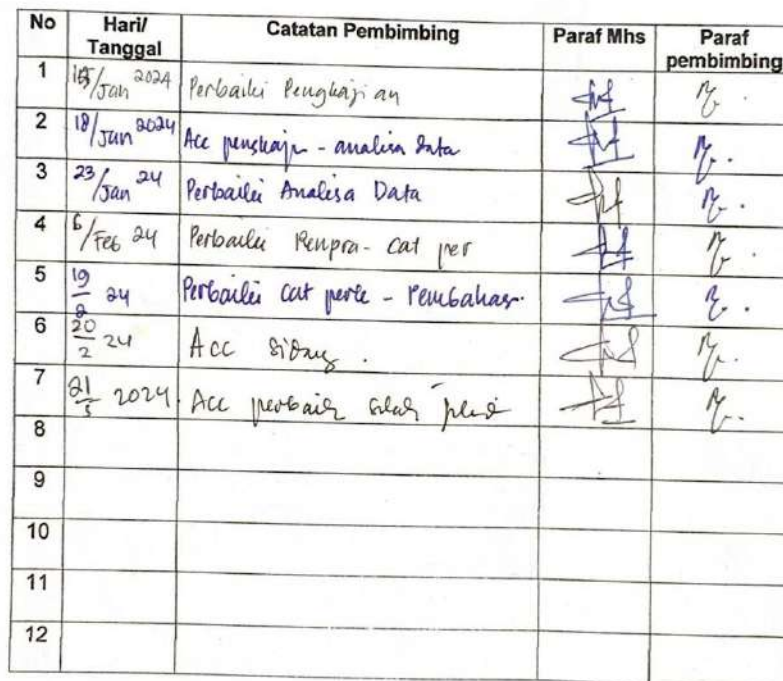 No Hari/ Tanggal Catatan Pembimbing Paraf Mhs Paraf pembimbing
1 15/Jan 2024 Perbaiki Pengkajian
2 18/Jan 2024 Acc pengkaji - analisa data
3 23/Jan 24 Perbaiki Analisa Data
4 6/Feb 24 Perbaiki Renpra - Cat per
5 19/2 24 Perbaiki Cat perke - Pembahas.
6 20/2 24 Acc Sidang.
7 21/5 2024 Acc perbaik
8
9
10
11
12